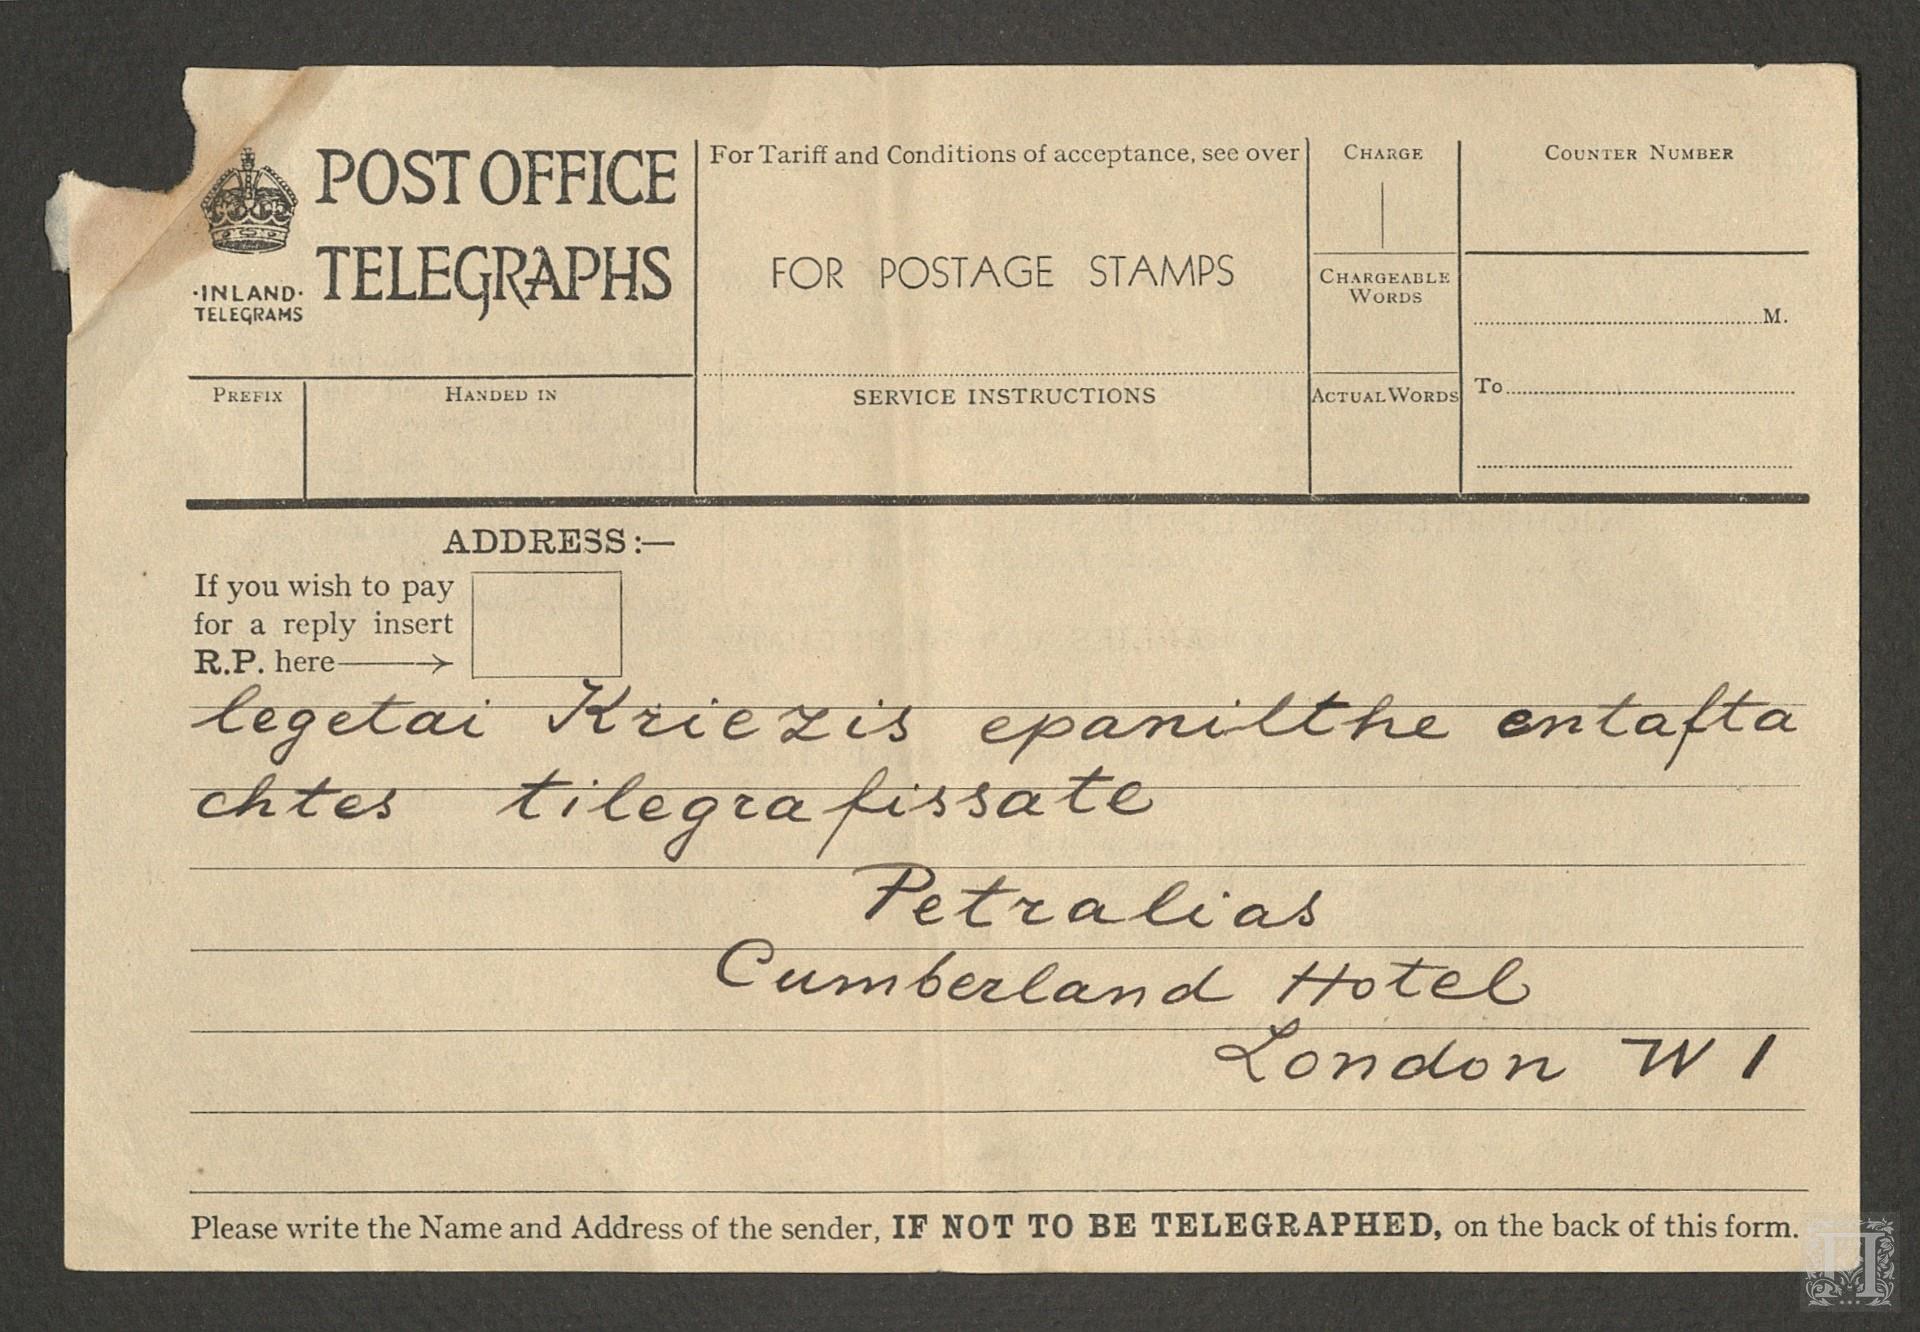 POST OFFICE
TELEGRAPHS
·INLAND·
TELEGRAMS
For Tariff and Conditions of acceptance, see over
FOR POSTAGE STAMPS
CHARGE
COUNTER NUMBER
CHARGEABLE
WORDS
M.
PREFIX
HANDED IN
SERVICE INSTRUCTIONS
ACTUAL WORDS
To
ADDRESS:—
If you wish to pay
for a reply insert
R.P. here
legetai Kriezis epanilthe entafta
chtes tilegrafissate
Petralias
Cumberland Hotel
London W1
Please write the Name and Address of the sender, IF NOT TO BE TELEGRAPHED, on the back of this form.